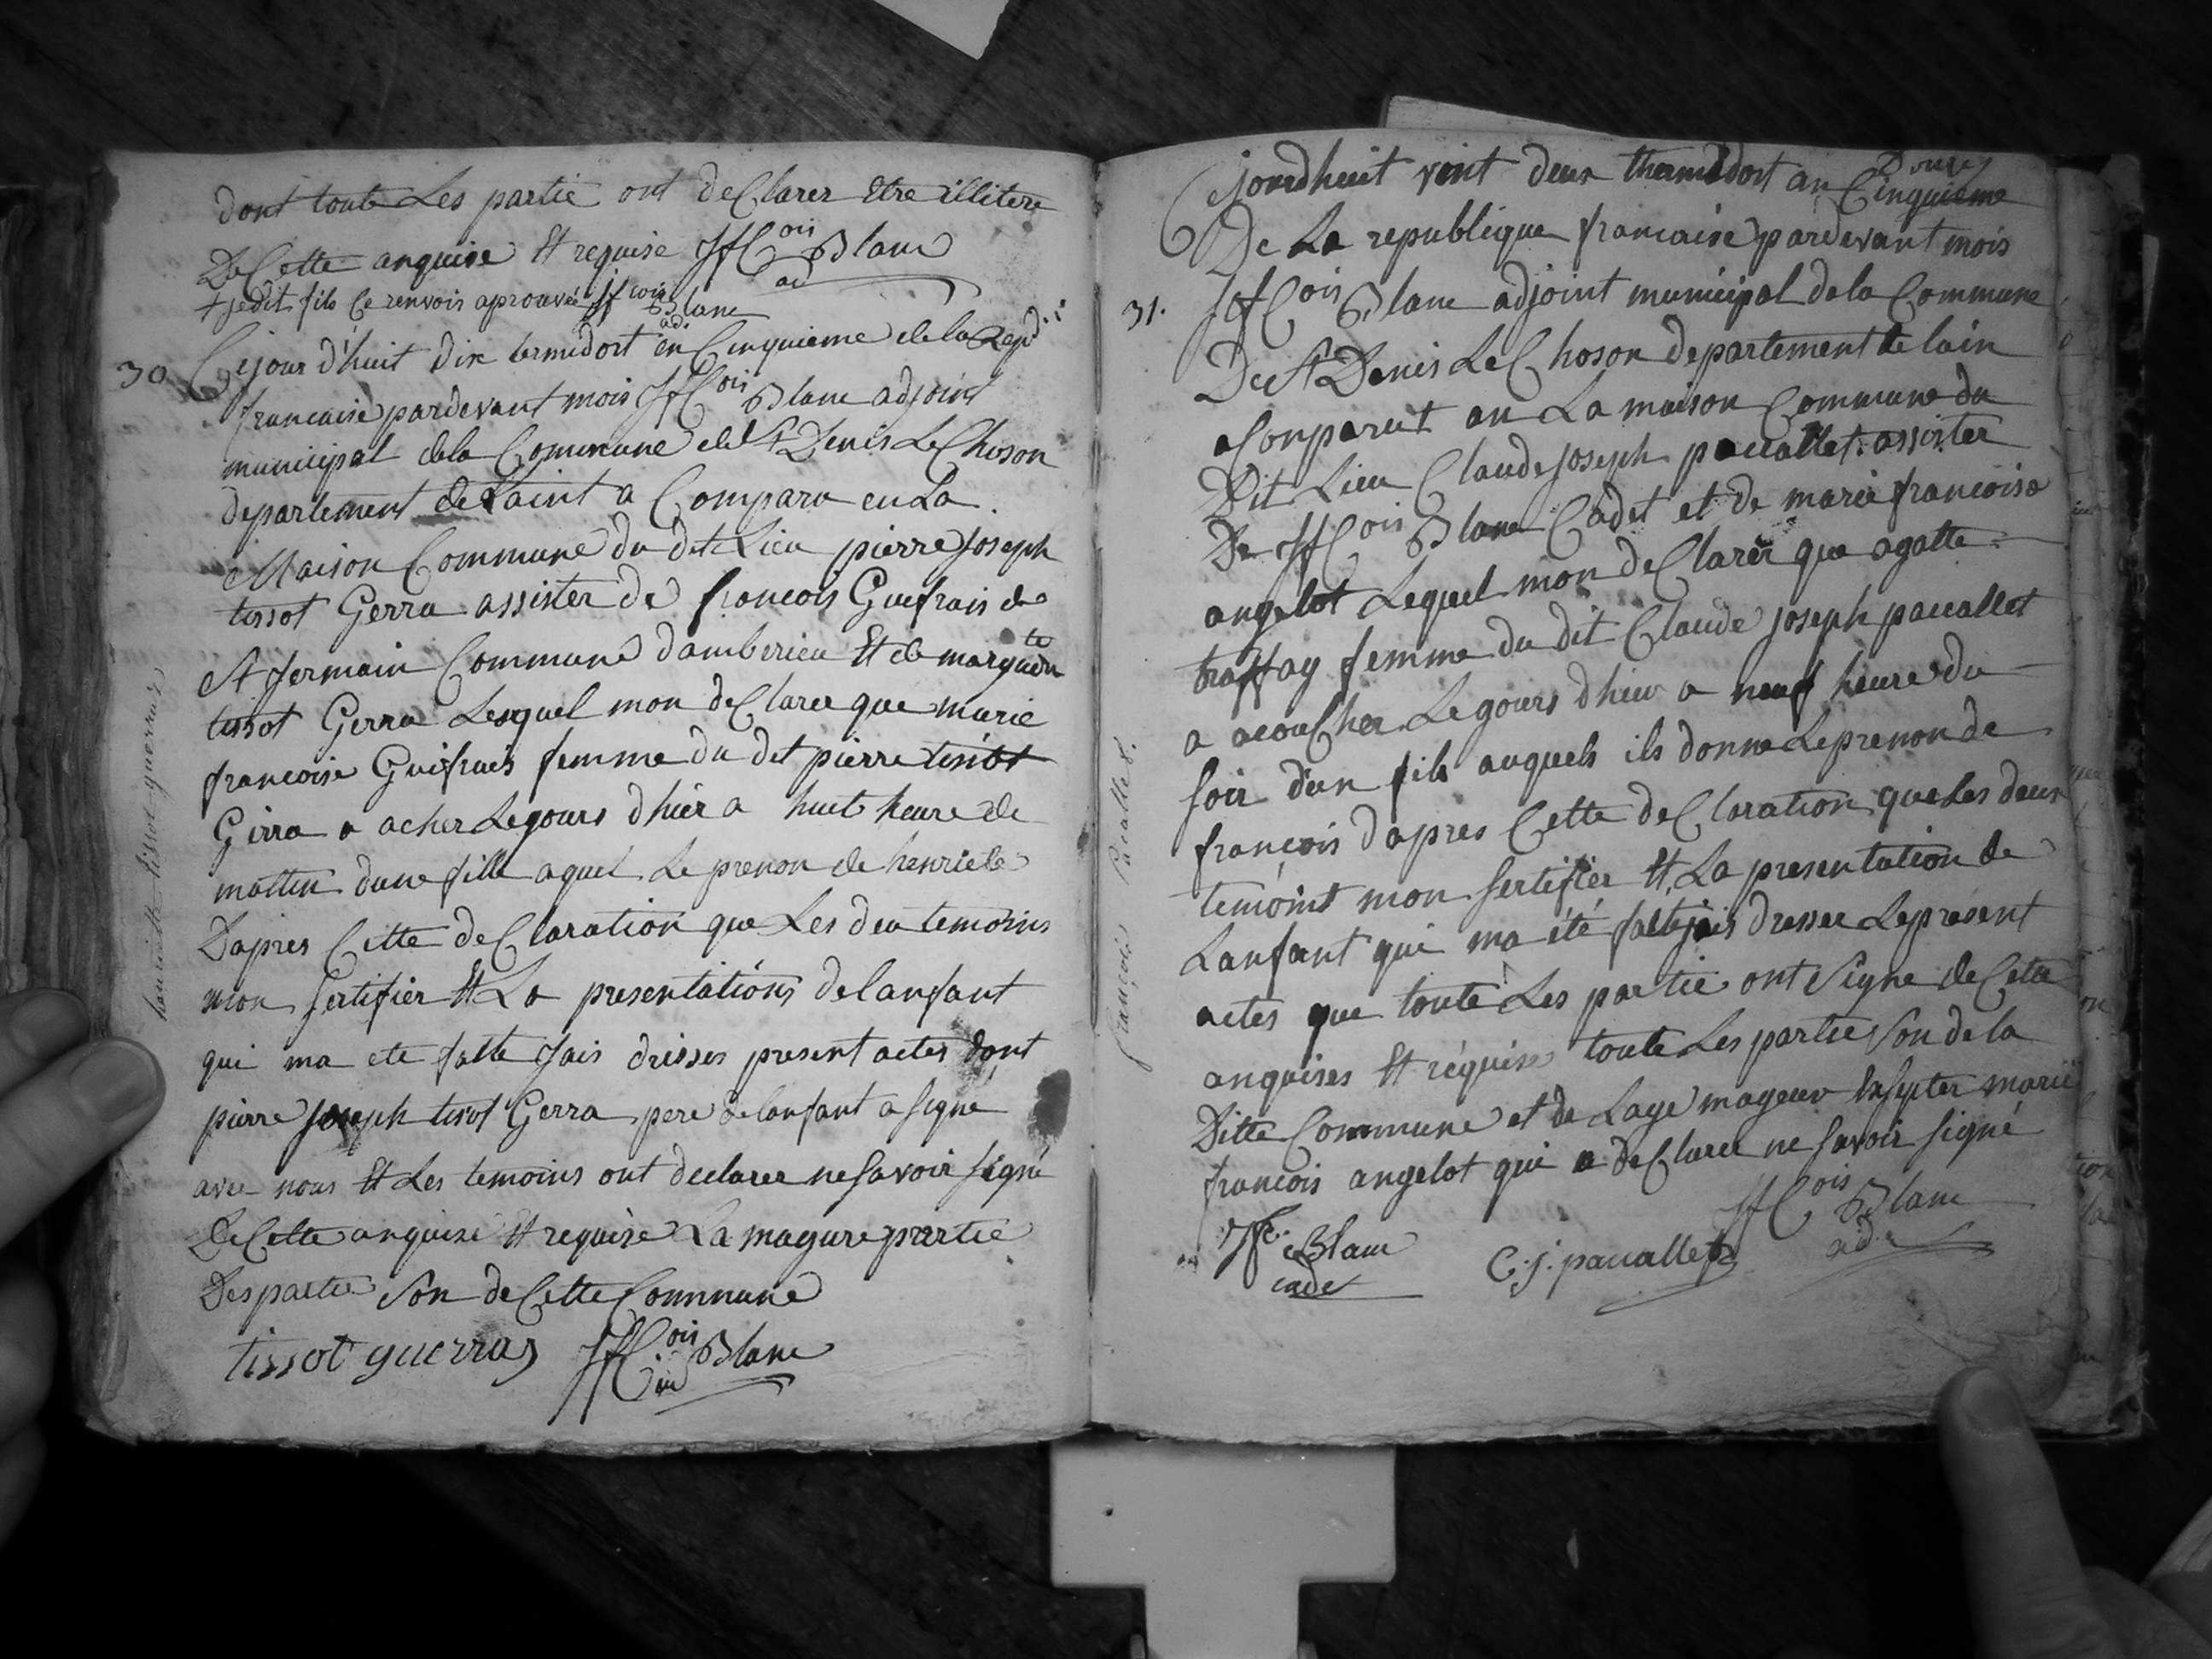 dont toute Les partie ont deClarer Etre illitere
De Cette anquise Et requise JfCois Blanc
ad
+ jedit fils Ce renvois aprouvée Jf cois Blanc
ad.
30
Cejour d'huit Dix termidort en Cinquieme de la Rep.
francaise pardevant mois JfCois Blanc adjoint
municipal dela Commune de St Denis Le Choson
departement de Laint a Comparu en La
Maison Commune du dit Lieu pierre Joseph
tissot Gerra assister de francois Guefrais de
St Jermain Commune damberieu Et de margueritte
tissot Gerra Lesquel mon deClarer que marie
francoise Guifrais femme du dit pierre tissot
Girra a acher Le jours d hier a huit heure de
mattin dune fille aquel Le prenon de henriete
Dapres Cette deClaration que Les deu temoins
mon Sertifier Et La presentations de lanfant
qui ma ete faitte Jais drisser present actes dont
pierre Joseph tisot Gerra pere de lanfant a signé
avec nous Et Les temoins ont declarer ne Savoir signé
De Cette anquise Et requise La magure partie
Des partie Son de Cette Commune
tissot guerraz JfCois Blanc
ad
henriette tissot guerraz
31.
Cejourdhuit vint deux thermidort an Cinquieme
De La republique francaise pardevant mois
JfCois Blanc adjoint municipal de la Commune
De St Denis Le Choson departement de lain
a Conparut an La maison Commune du
Dit Lieu Claude Joseph pacallet assister
De JfCois Blanc Cadet et de marie francoise
angelot Lequel mon deClarer que agatte
traffay femme du dit Claude Joseph pacallet
a acouCher Le jours d hier a neuf heure du
soir dun fils auquels ils donne Le prenon de
francois dapres Cette deClaration que Les deux
temoint mon Sertifier Et La presentation de
Lanfant qui ma été faitte jais dresser Le present
actes que toute Les partie ont signe de Cette
anquises Et requise toute Les partie Son de la
Ditte Commune et de Lage mageur Exsepter marie
francois angelot qui a deClarer ne Savoir signé
Jfc. Blanc
cadet
C. j. pacallet
JfCois Blanc
ad.
françois Pacallet.